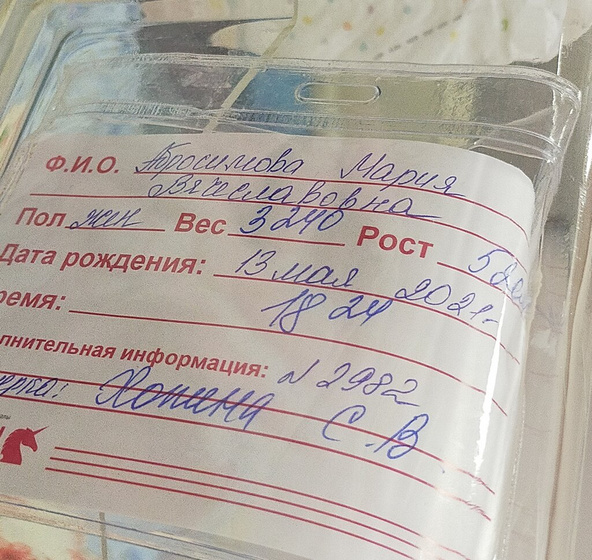 Ф.И.О. Абросимова Мария
Вячеславовна
Пол жен Вес 3240 Рост 52
Дата рождения: 13 мая 2021г
ремя: 18 24
лнительная информация: N 2982
ерка: С.В